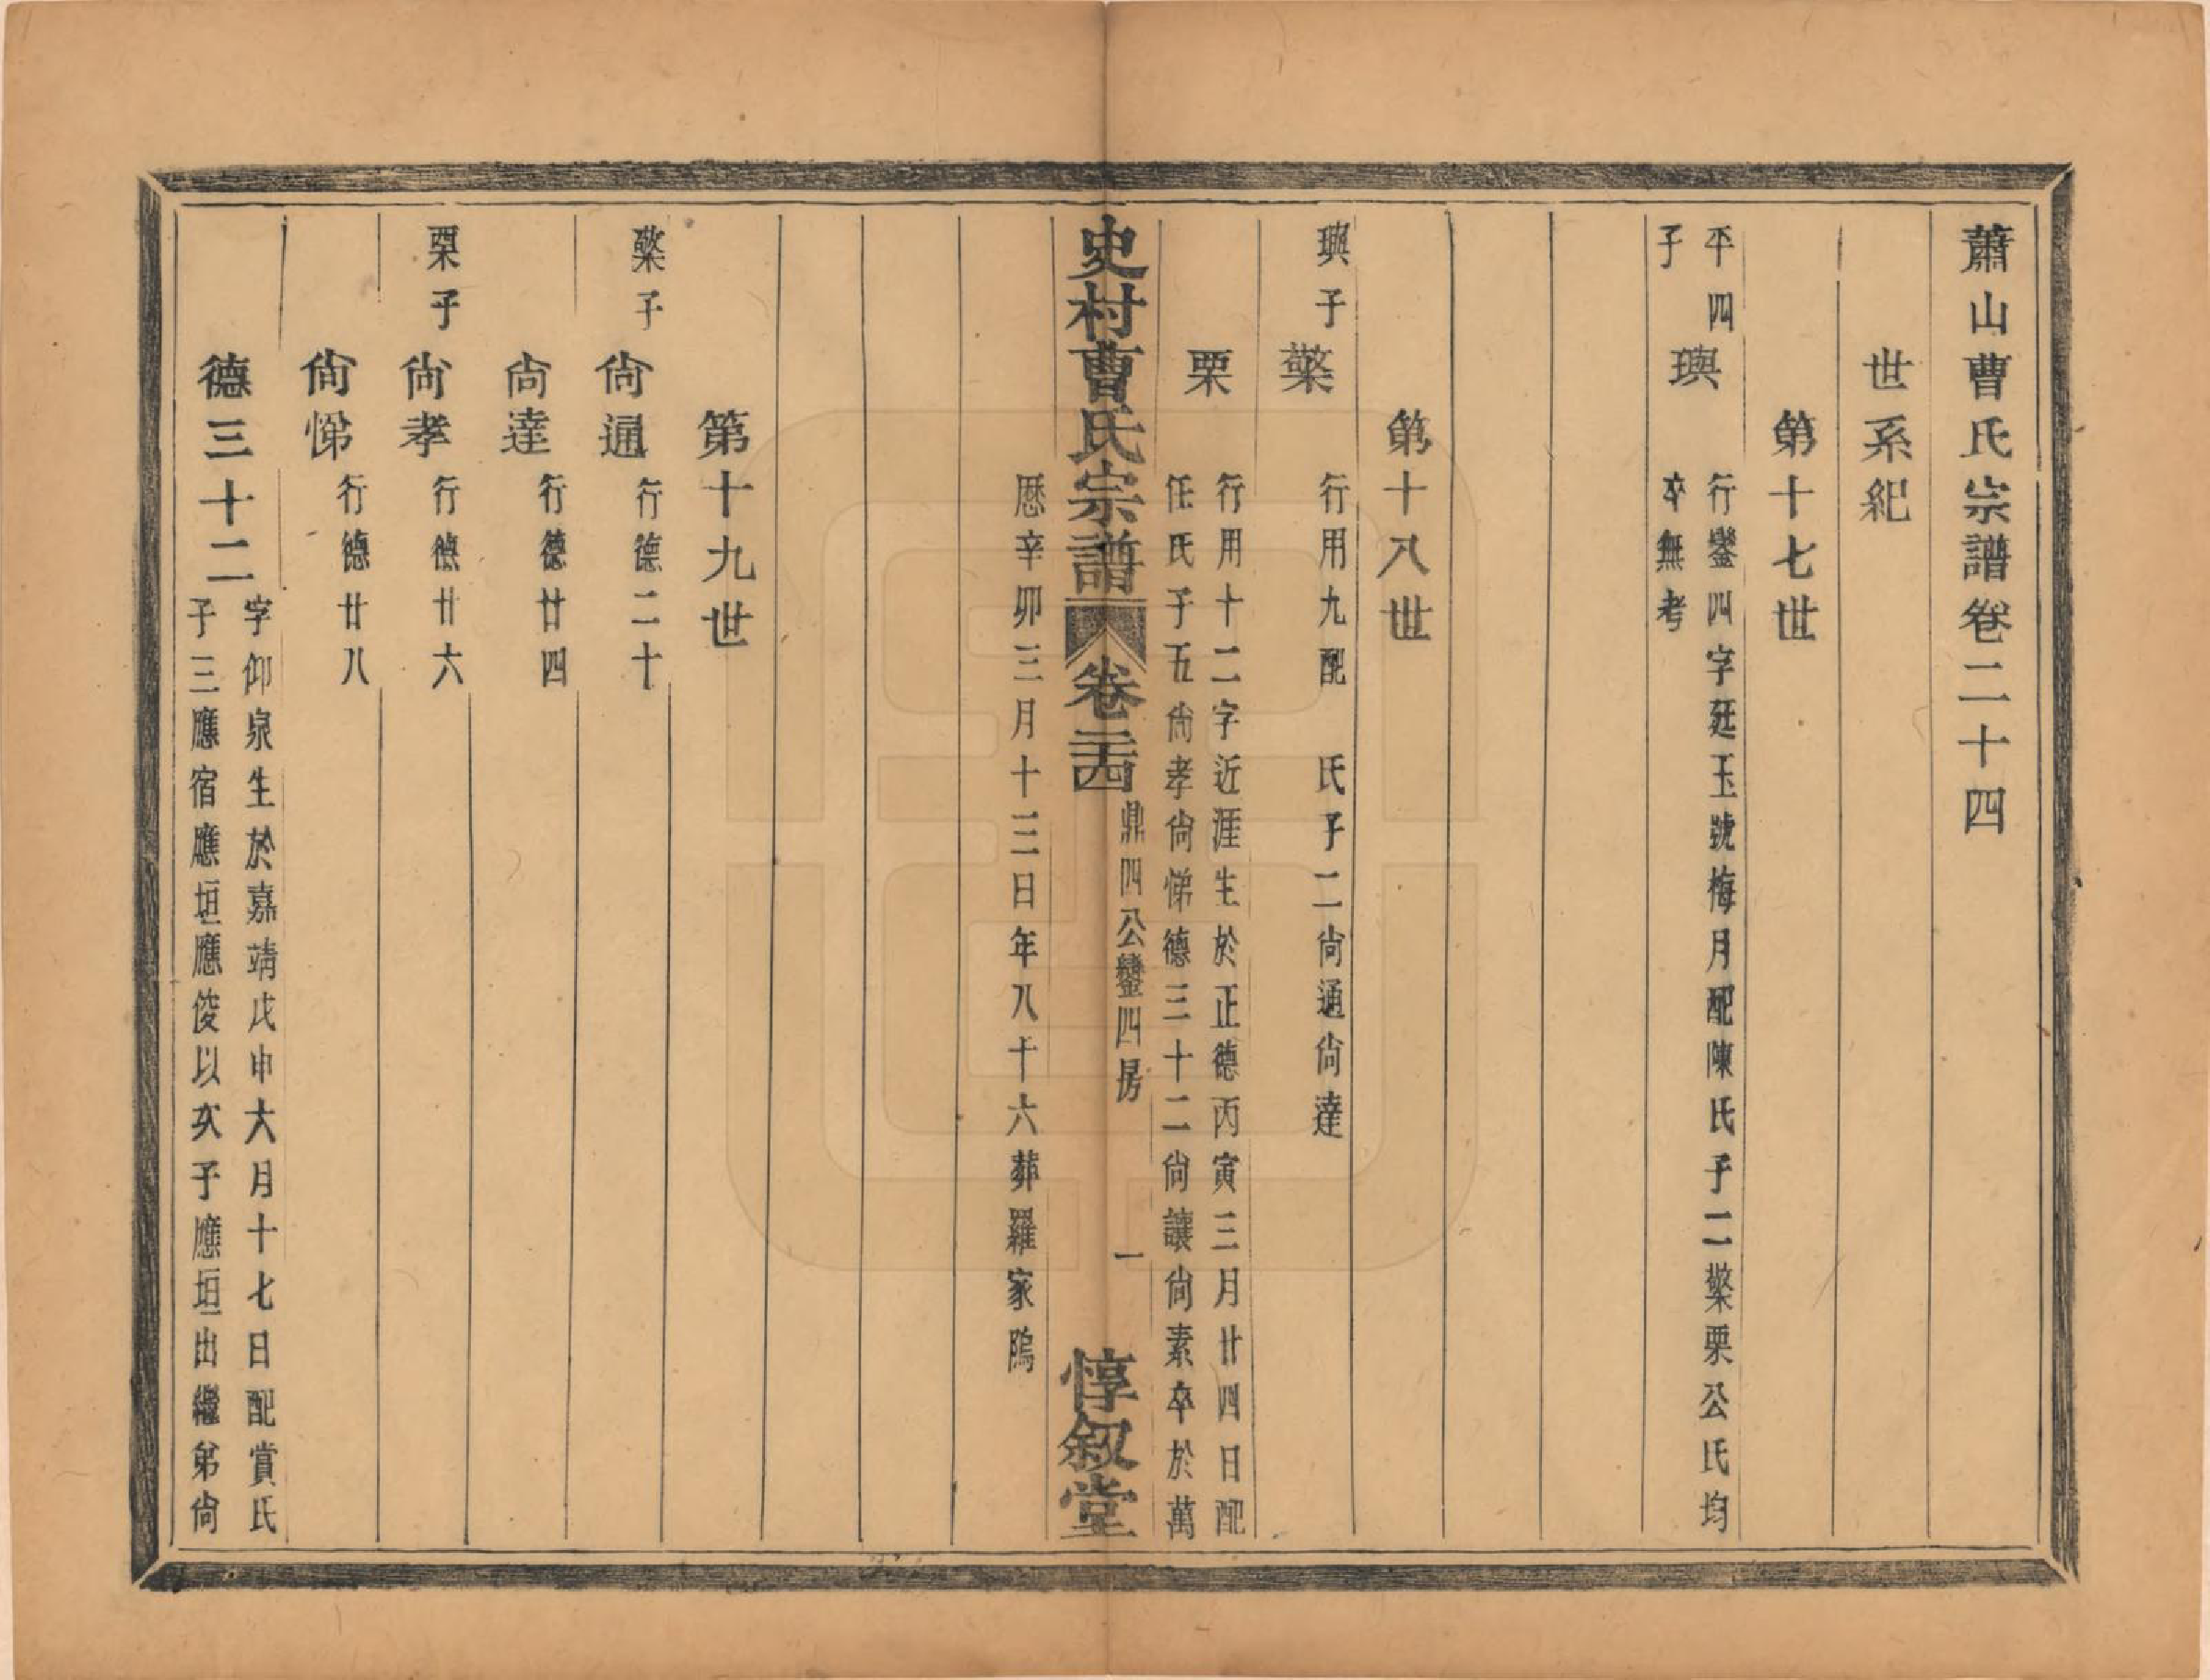 蕭山曹氏宗譜卷二十四
世系紀
第十七世
平四
子
璵
行鑾四字廷玉號梅月配陳氏子二檠栗公氏均
卒無考
第十八世
璵子
檠
行用九配　氏子二尙通尙達
栗
行用十二字近涯生於正德丙寅三月廿四日配
任氏子五尙孝尙悌德三十二尙讓尙素卒於萬
史村曹氏宗譜
卷二十四
鼎四公鑾四房
一
惇叙堂
厯辛卯三月十三日年八十六葬羅家隖
第十九世
檠子
尙通
行德二十
尙達
行德廿四
栗子
尙孝
行德廿六
尙悌
行德廿八
德三十二
字仰泉生於嘉靖戊申大月十七日配賞氏
子三應宿應垣應俊以次子應垣出繼弟尙